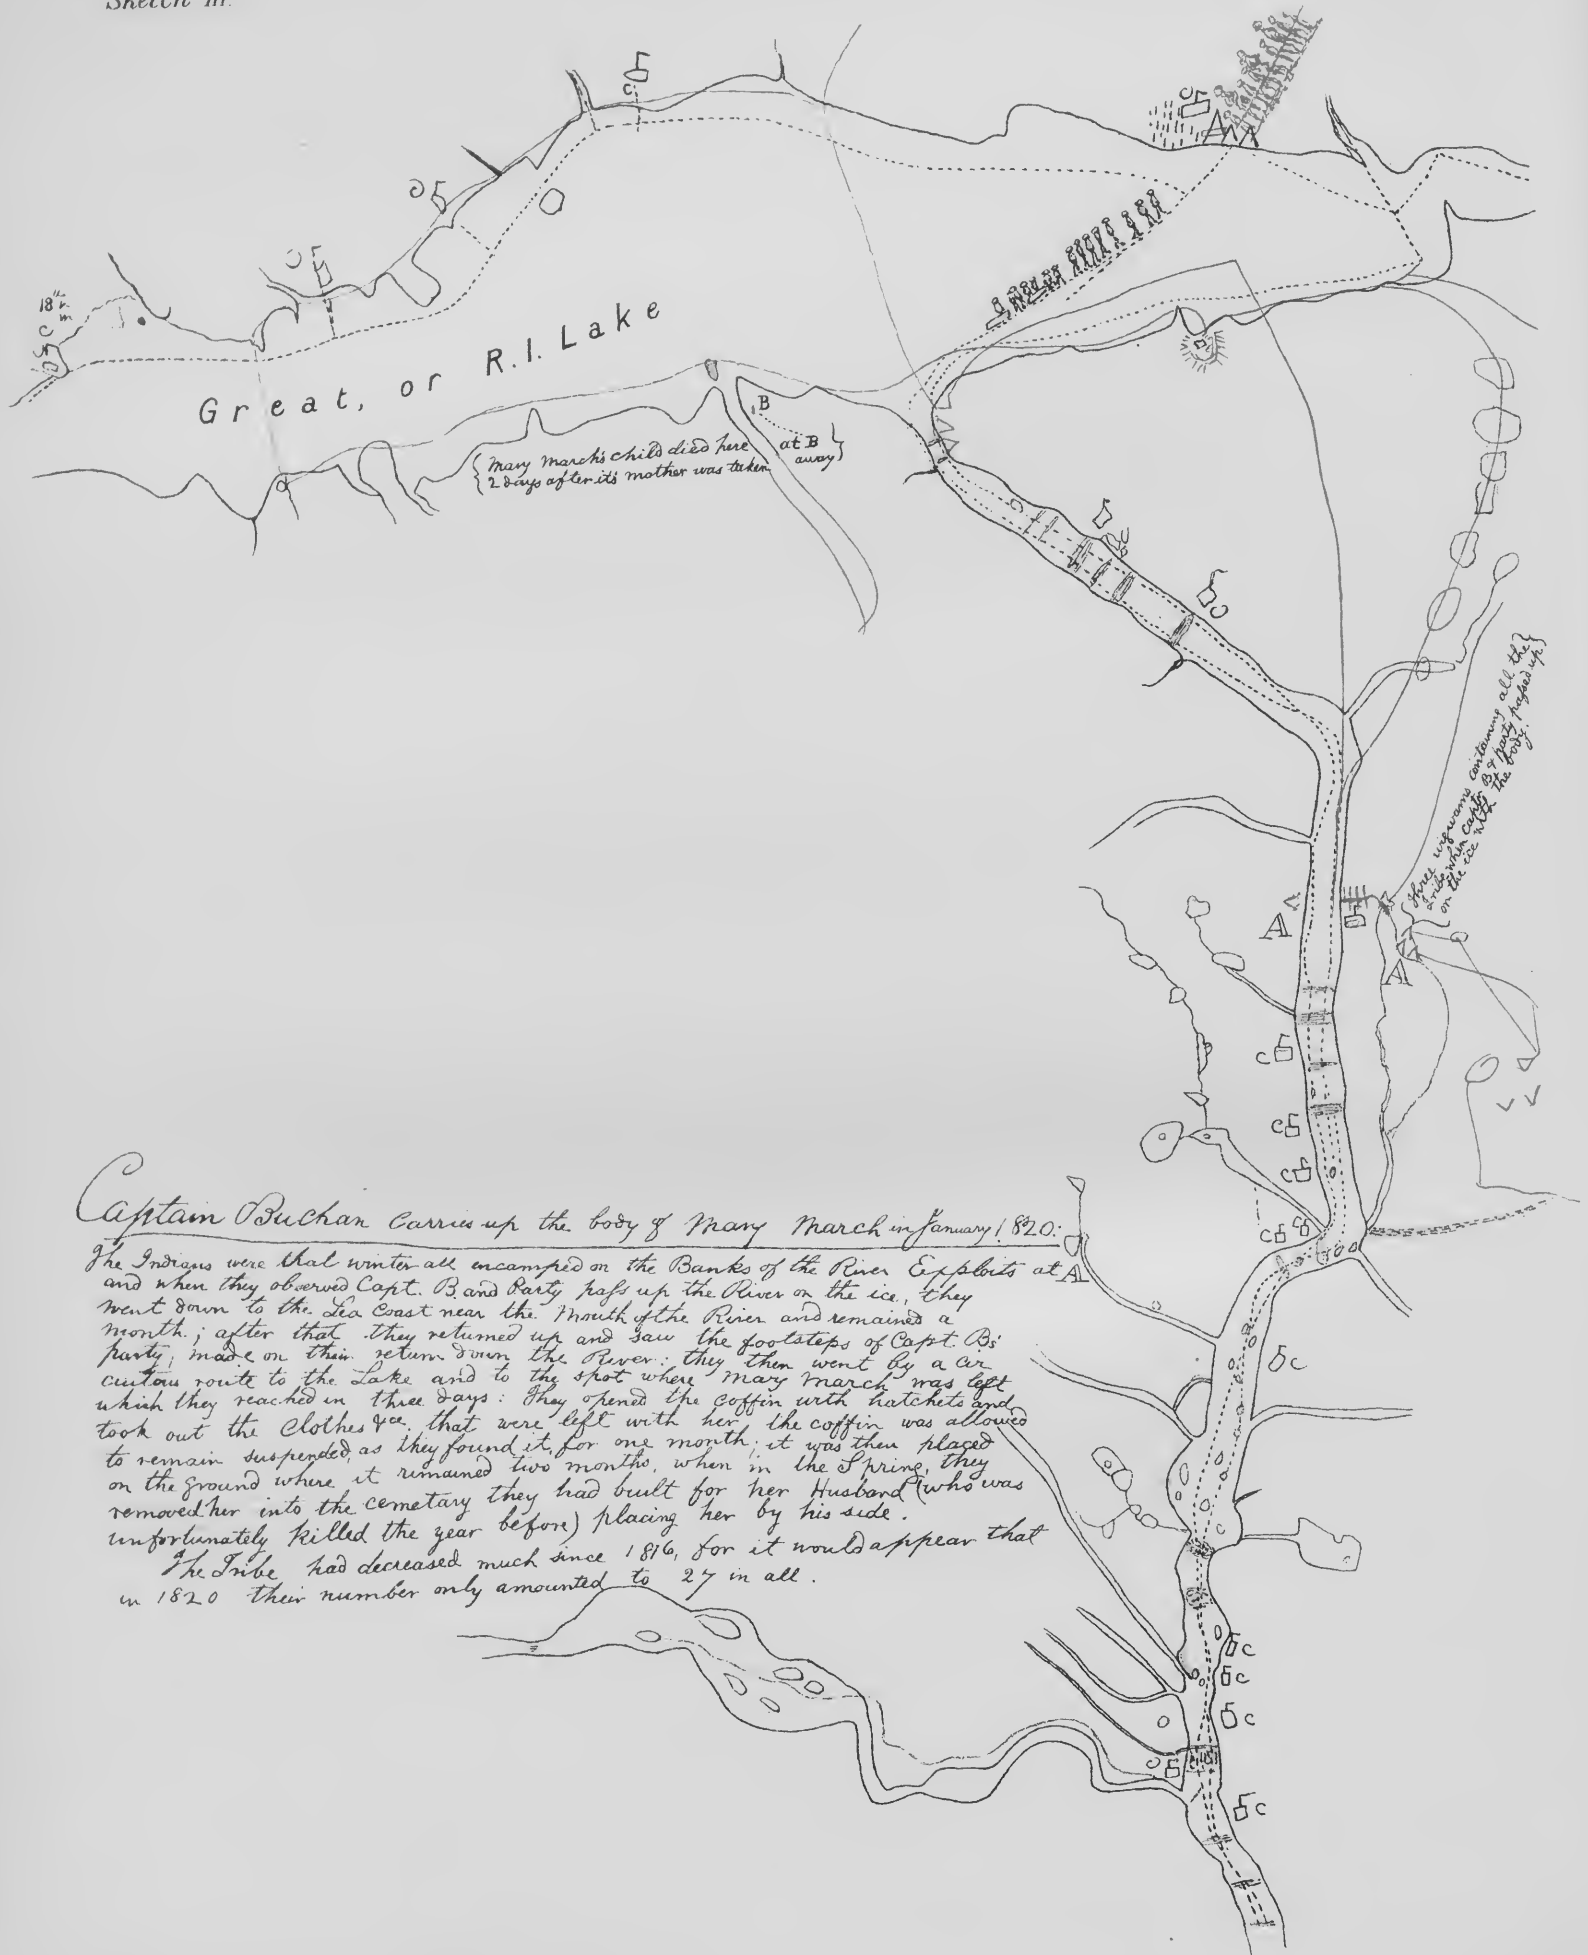 Sketch III.
C
C
A
18th
m
C
Great, or R.I. Lake
B
{ Mary March's child died here at B }
{ 2 days after it's mother was taken away }
Three wigwams containing all the
tribe when Captn. B & party passed up
on the ice with the body.
A
A
C
C
C
C
Captain Buchan carries up the body of Mary March in January 1820:
The Indians were that winter all encamped on the Banks of the River Exploits at A
and when they observed Capt. B. and Party pass up the River on the ice, they
went down to the Sea Coast near the Mouth of the River and remained a
month; after that they returned up and saw the footsteps of Capt. Bs'
party, made on their return down the River: they then went by a cir
cuitous route to the Lake and to the spot where Mary March was left
which they reached in three days: They opened the coffin with hatchets and
took out the Clothes &ce. that were left with her, the coffin was allowed
to remain suspended, as they found it, for one month; it was then placed
on the ground where it remained two months, when in the Spring, they
removed her into the cemetary they had built for her Husband (who was
unfortunately killed the year before) placing her by his side.
The Tribe had decreased much since 1816, for it would appear that
in 1820 their number only amounted to 27 in all.
C
C
C
C
C